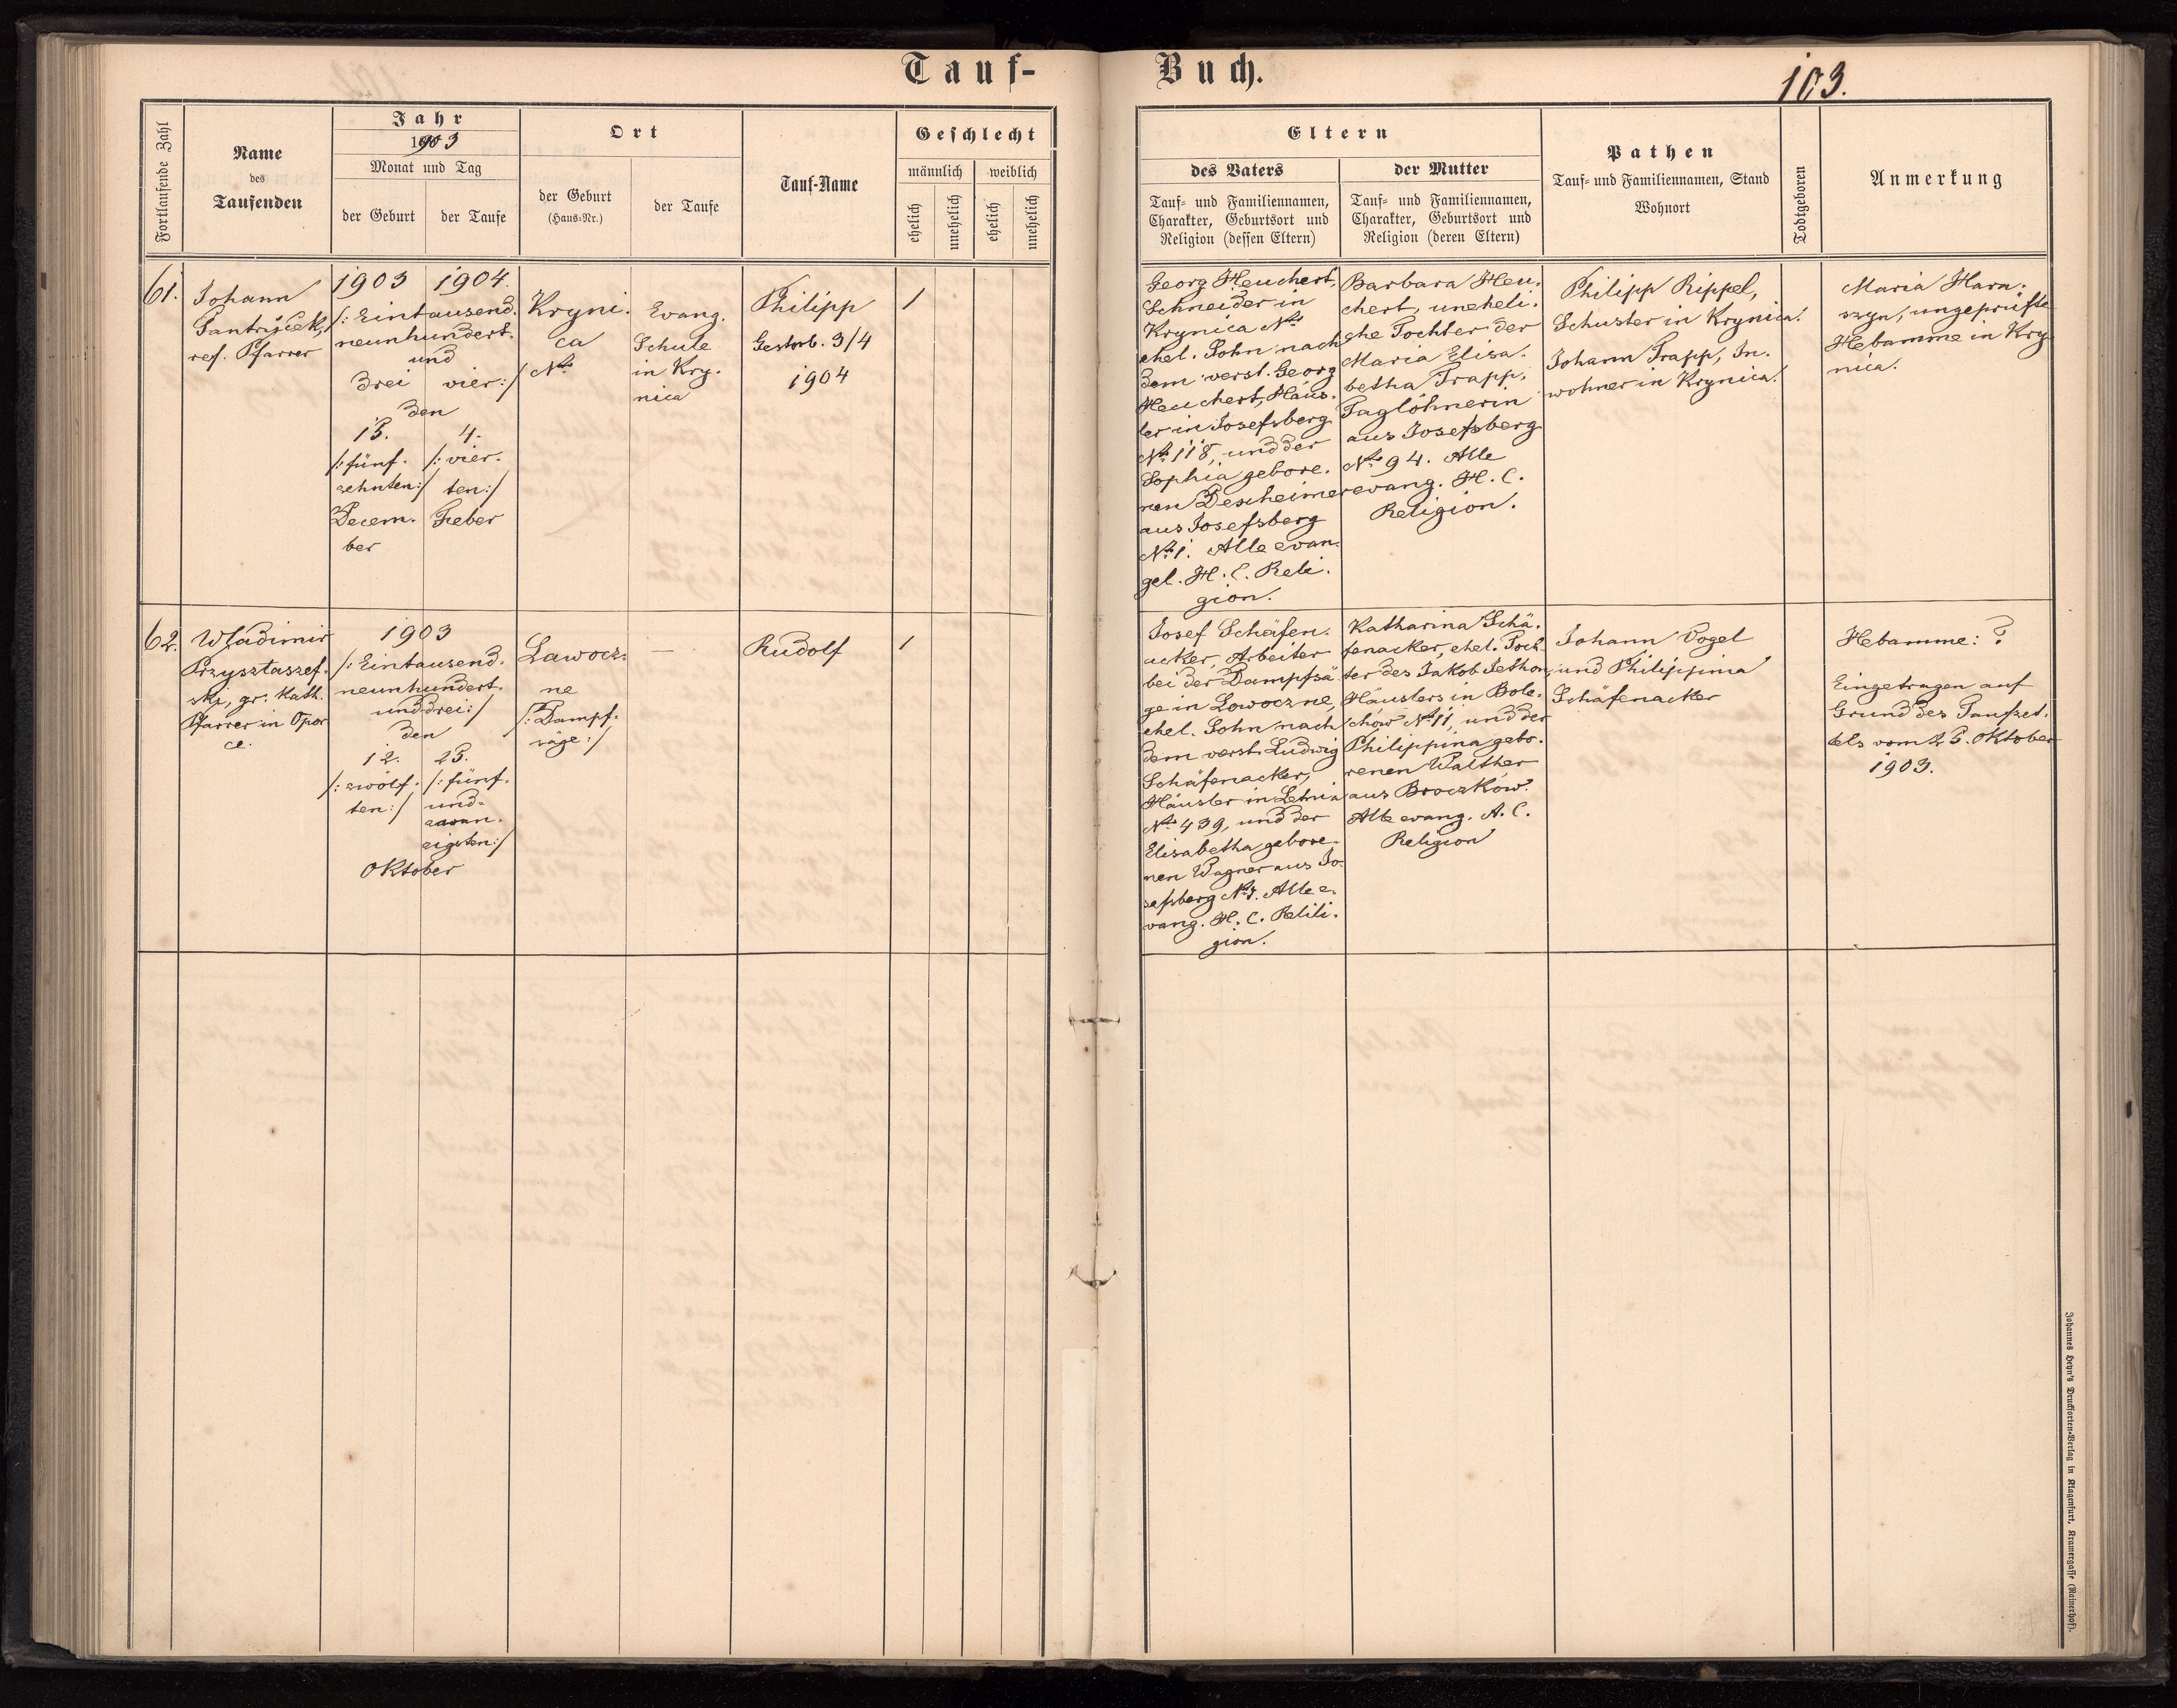 Tauf-
Buch.
103.
Fortlaufende Zahl
Name
des
Taufenden
Jahr
1903
Monat und Tag
der Geburt
der Taufe
Ort
der Geburt
(Haus-Nr.)
der Taufe
Tauf-Name
Geschlecht
männlich
weiblich
ehelich
unehelich
ehelich
unehelich
Eltern
des Vaters
Tauf- und Familiennamen,
Charakter, Geburtsort und
Religion (dessen Eltern)
der Mutter
Tauf- und Familiennamen,
Charakter, Geburtsort und
Religion (deren Eltern)
Pathen
Tauf- und Familiennamen, Stand
Wohnort
Todtgeboren
Anmerkung
61.
Johann
Pantrůček,
ref. Pfarrer
1903 1904.
/: Eintausend.
neunhundert.
und
drei vier :/
den
15. 4.
/: fünf. /: vier.
zehnten :/ ten :/
Decem. Feber
ber
Kryni.
ca
No
Evang.
Schule
in Kry.
nica
Philipp
Gestorb. 3/4
1904
1
Georg Heuchert,
Schneider in
Krynica No
ehel. Sohn nach
dem verst. Georg
Heuchert, Häus.
ler in Josefsberg
No 118, und der
Sophia gebore.
nen Descheimer
aus Josefsberg
No 1. Alle evan.
gel. H. C. Reli.
gion.
Barbara Heu.
chert, uneheli.
che Tochter der
Maria Elisa.
betha Trapp,
Taglöhnerin
aus Josefsberg
No 94. Alle
evang. H. C.
Religion.
Philipp Rippel,
Schuster in Krynica.
Johann Trapp, In.
wohner in Krynica.
Maria Hara.
szyn, ungeprüfte
Hebamme in Kry.
nica.
62.
Wladimir
Przysztaszef.
skj, gr. Kath.
Pfarrer in Opor
ce.
1903
/: Eintausend.
neunhundert.
und drei :/
den
12. 25.
/: zwölf. /: fünf.
ten :/ und.
zwan.
zigsten :/
Oktober
Lawocz.
ne
/: Dampf.
säge :/
—
Rudolf
1
Josef Schäfen.
acker, Arbeiter
bei der Dampfsä
ge in Lowoczne,
ehel. Sohn nach
dem verst. Ludwig
Schäfenacker,
Häusler in Letnia
No 439, und der
Elisabetha gebore.
nen Wagner aus Jo.
sefsberg No 7. Alle e.
vang. H. C. Relili.
gion.
Katharina Schä.
fenacker, ehel. Toch.
ter des Jakob Jethon,
Häuslers in Bole.
chów No 11, und der
Philippina gebo.
renen Walther
aus Broczków.
Alle evang. A. C.
Religion
Johann Vogel
und Philippina
Schäfenacker
Hebamme: ?
Eingetragen auf
Grund des Taufzet.
tels vom 25. Oktober
1903.
Johannes Heyn's Drucksorten-Verlag in Klagenfurt, Kramergasse (Rainerhof).